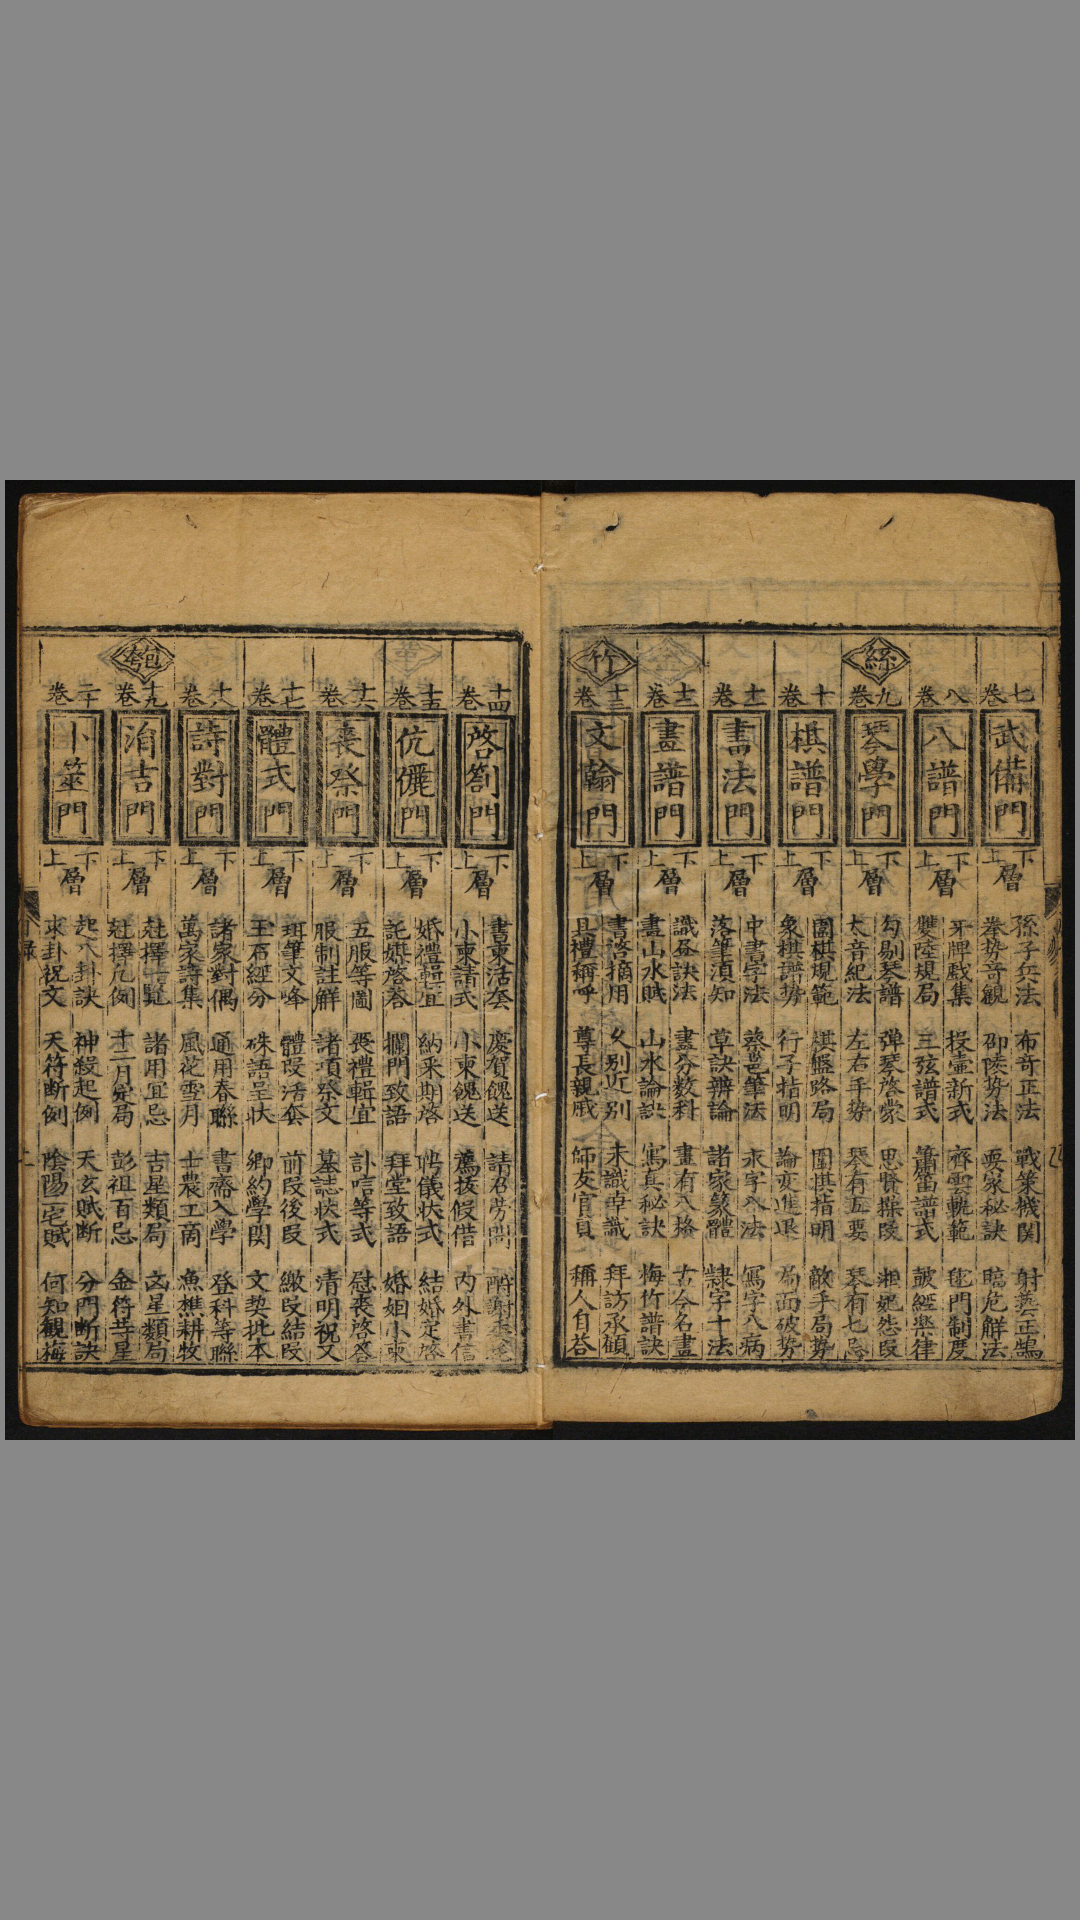 七卷
武備門
上下層
孫子兵法 布奇正法 戰策機関 射藝正鵠
拳势奇觀 邵陵势法 要家秘訣 臨危解法
八卷
八譜門
上下層
牙牌戲集 投壷新式 齊雲軌範 毬門制度
雙陸規局 三弦譜式 簫笛譜式 鼓經楽律
絲
九卷
琴學門
上下層
勾剔琴譜 弹琴啓蒙 思賢操叚 湘妃怨叚
大音紀法 左右手势 琴有五要 琴有七忌
十卷
棋譜門
上下層
圍棋規範 棋盤路局 圍棋指明 敵手局势
象棋譜势 行子指明 論变進退 局面破势
十一卷
書法門
上下層
中書字法 蔡邕筆法 永字八法 寫字八病
落筆須知 草訣辨論 諸家篆體 隸字十法
十二卷
畫譜門
上下層
識昼訣法 畫分数科 畫有八格 古今名畫
畫山水賦 山水論訣 寫真秘訣 梅竹譜訣
竹
十三卷
文翰門
上下層
書啓摘用 久别近别 未識幸識 拜訪承頋
具禮稱呼 尊長親戚 師友官員 稱人自荅
十四卷
啓劄門
上下層
書柬活套 慶賀餽送 請召
小柬請式 小柬餽送 薦拔假借 内外書信
十五卷
伉儷門
上下層
婚禮輯宜 納采期啓 聘儀状式 結婚定啓
託媒啓荅 攔門致語 拜堂致語 婚姻小柬
十六卷
喪祭門
上下層
五服等圖 喪禮輯宜 訃唁等式 慰喪啓答
服制註解 諸項祭文 墓誌状式 清明祝文
十七卷
體式門
上下層
珥筆文峰 體叚活套 前叚後叚 繳叚結叚
玉石經分 硃語呈状 郷約學関 文契批本
十八卷
詩對門
上下層
諸家對偶 通用春聯 書齋入學 登科等聯
萬家詩集 風花雪月 士農工商 魚樵耕牧
匏
十九卷
涓吉門
上下層
尅擇一覧 諸用宜忌 吉星類局 凶星類局
尅擇凢例 十二月定局 彭祖百忌 金符等星
二十卷
卜筮門
上下層
起八卦訣 神殺起例 天玄賦断 分門断訣
求卦祝文 天符断例 陰陽二宅賦 何知觀梅